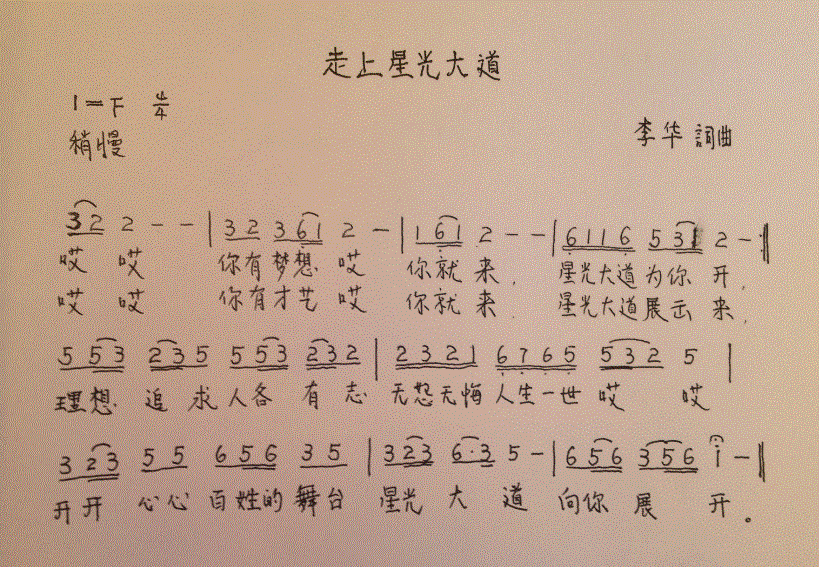 走上星光大道
1=F 4/4
稍慢
李华 詞曲
3 2 2 - - | 3 2 3 6 1 2 - | 1 6 1 2 - - | 6 1 1 6 5 3 1 2 - :‖
哎 哎 你有梦想 哎 你就 来, 星光大道 为你 开,
哎 哎 你有才艺 哎 你就 来. 星光大道 展示 来,
5 5 3 2 3 5 5 5 3 2 3 2 | 2 3 2 1 6 7 6 5 5 3 2 5 |
理想 追 求 人各 有 志 无怨无悔 人生一世 哎 哎
3 2 3 5 5 6 5 6 3 5 | 3 2 3 6·3 5 - | 6 5 6 3 5 6 i - ‖
开开 心心 百姓的 舞台 星光 大 道 向你 展 开。